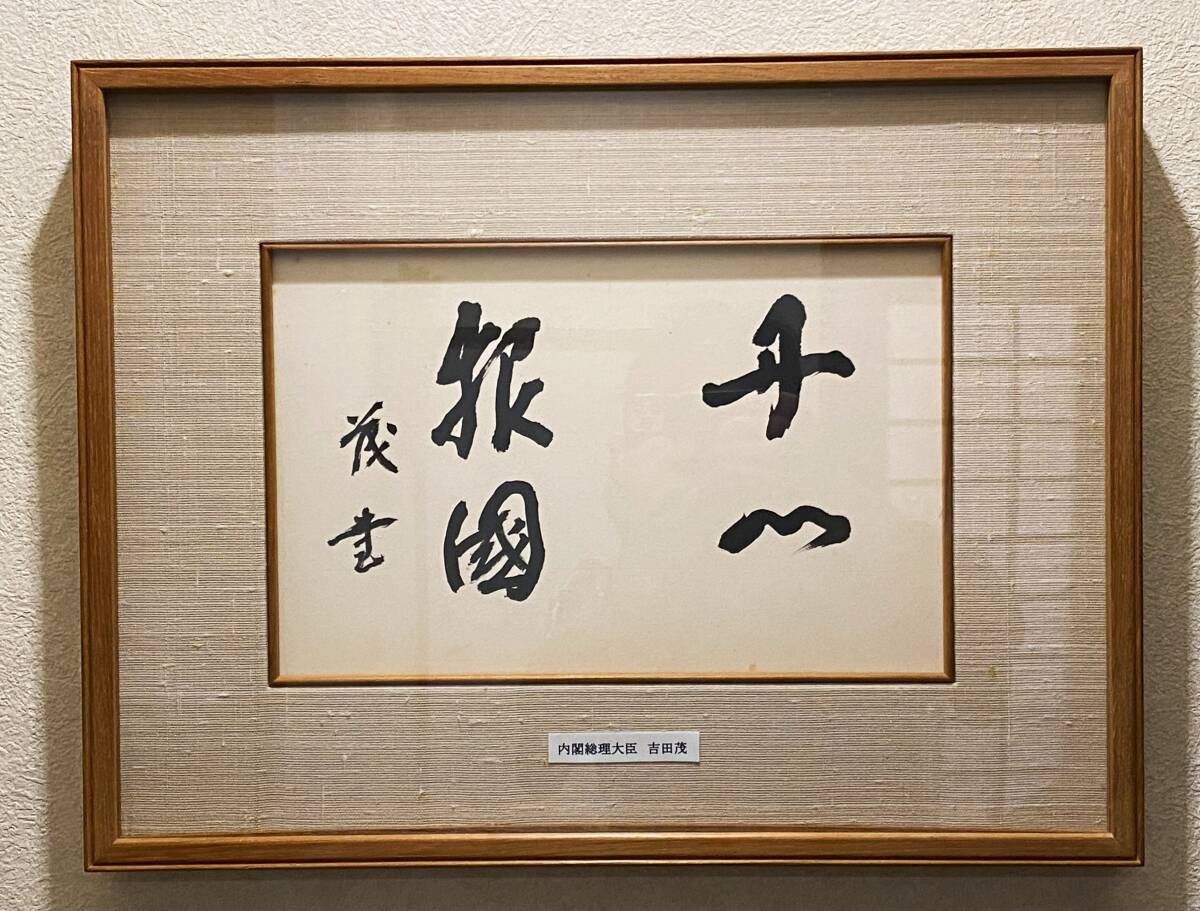 丹心
報國
茂書
内閣総理大臣 吉田茂